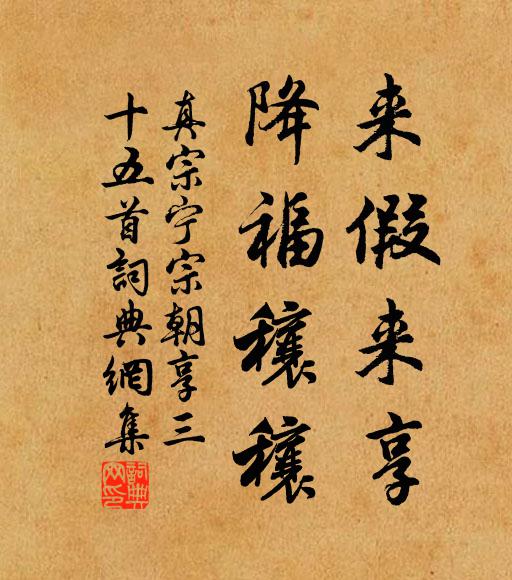 来假来享
降福穰穰
真宗宁宗朝享三
十五首詞典網集
詞典网印